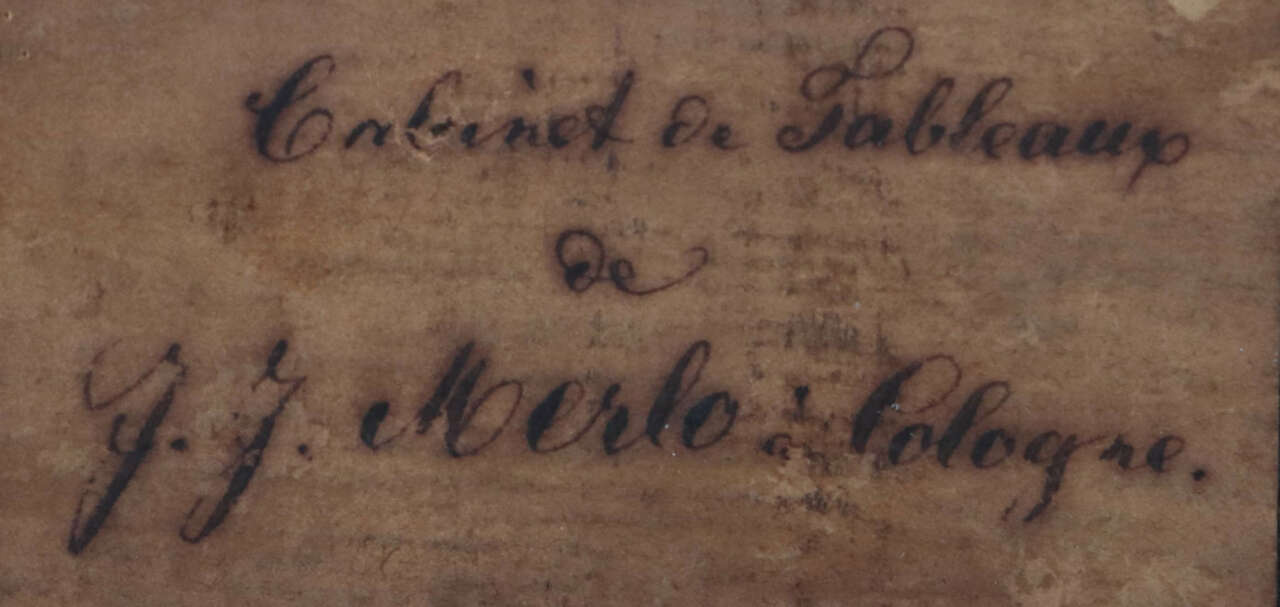 Cabinet de Tableaux
de
J. J. Merlo à Cologne.